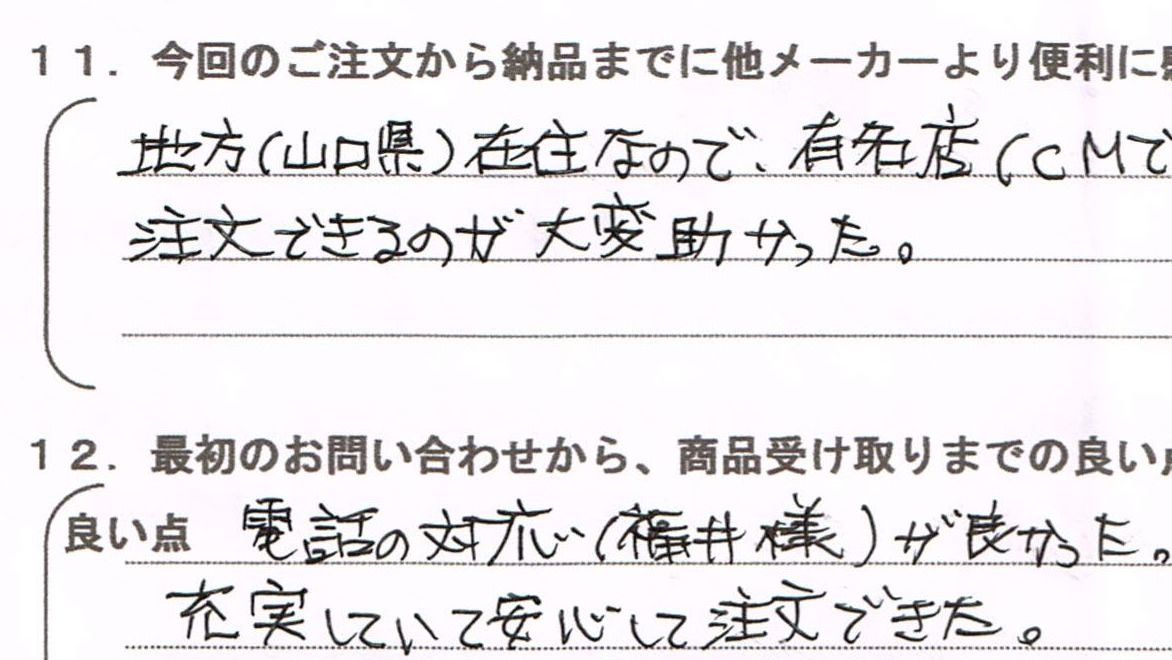 11. 今回のご注文から納品までに他メーカーより便利に
地方(山口県)在住なので、有名店(CMで
注文できるのが大変助かった。
12. 最初のお問い合わせから、商品受け取りまでの良い
良い点 電話の対応(様)が良かった。
充実していて安心して注文できた。